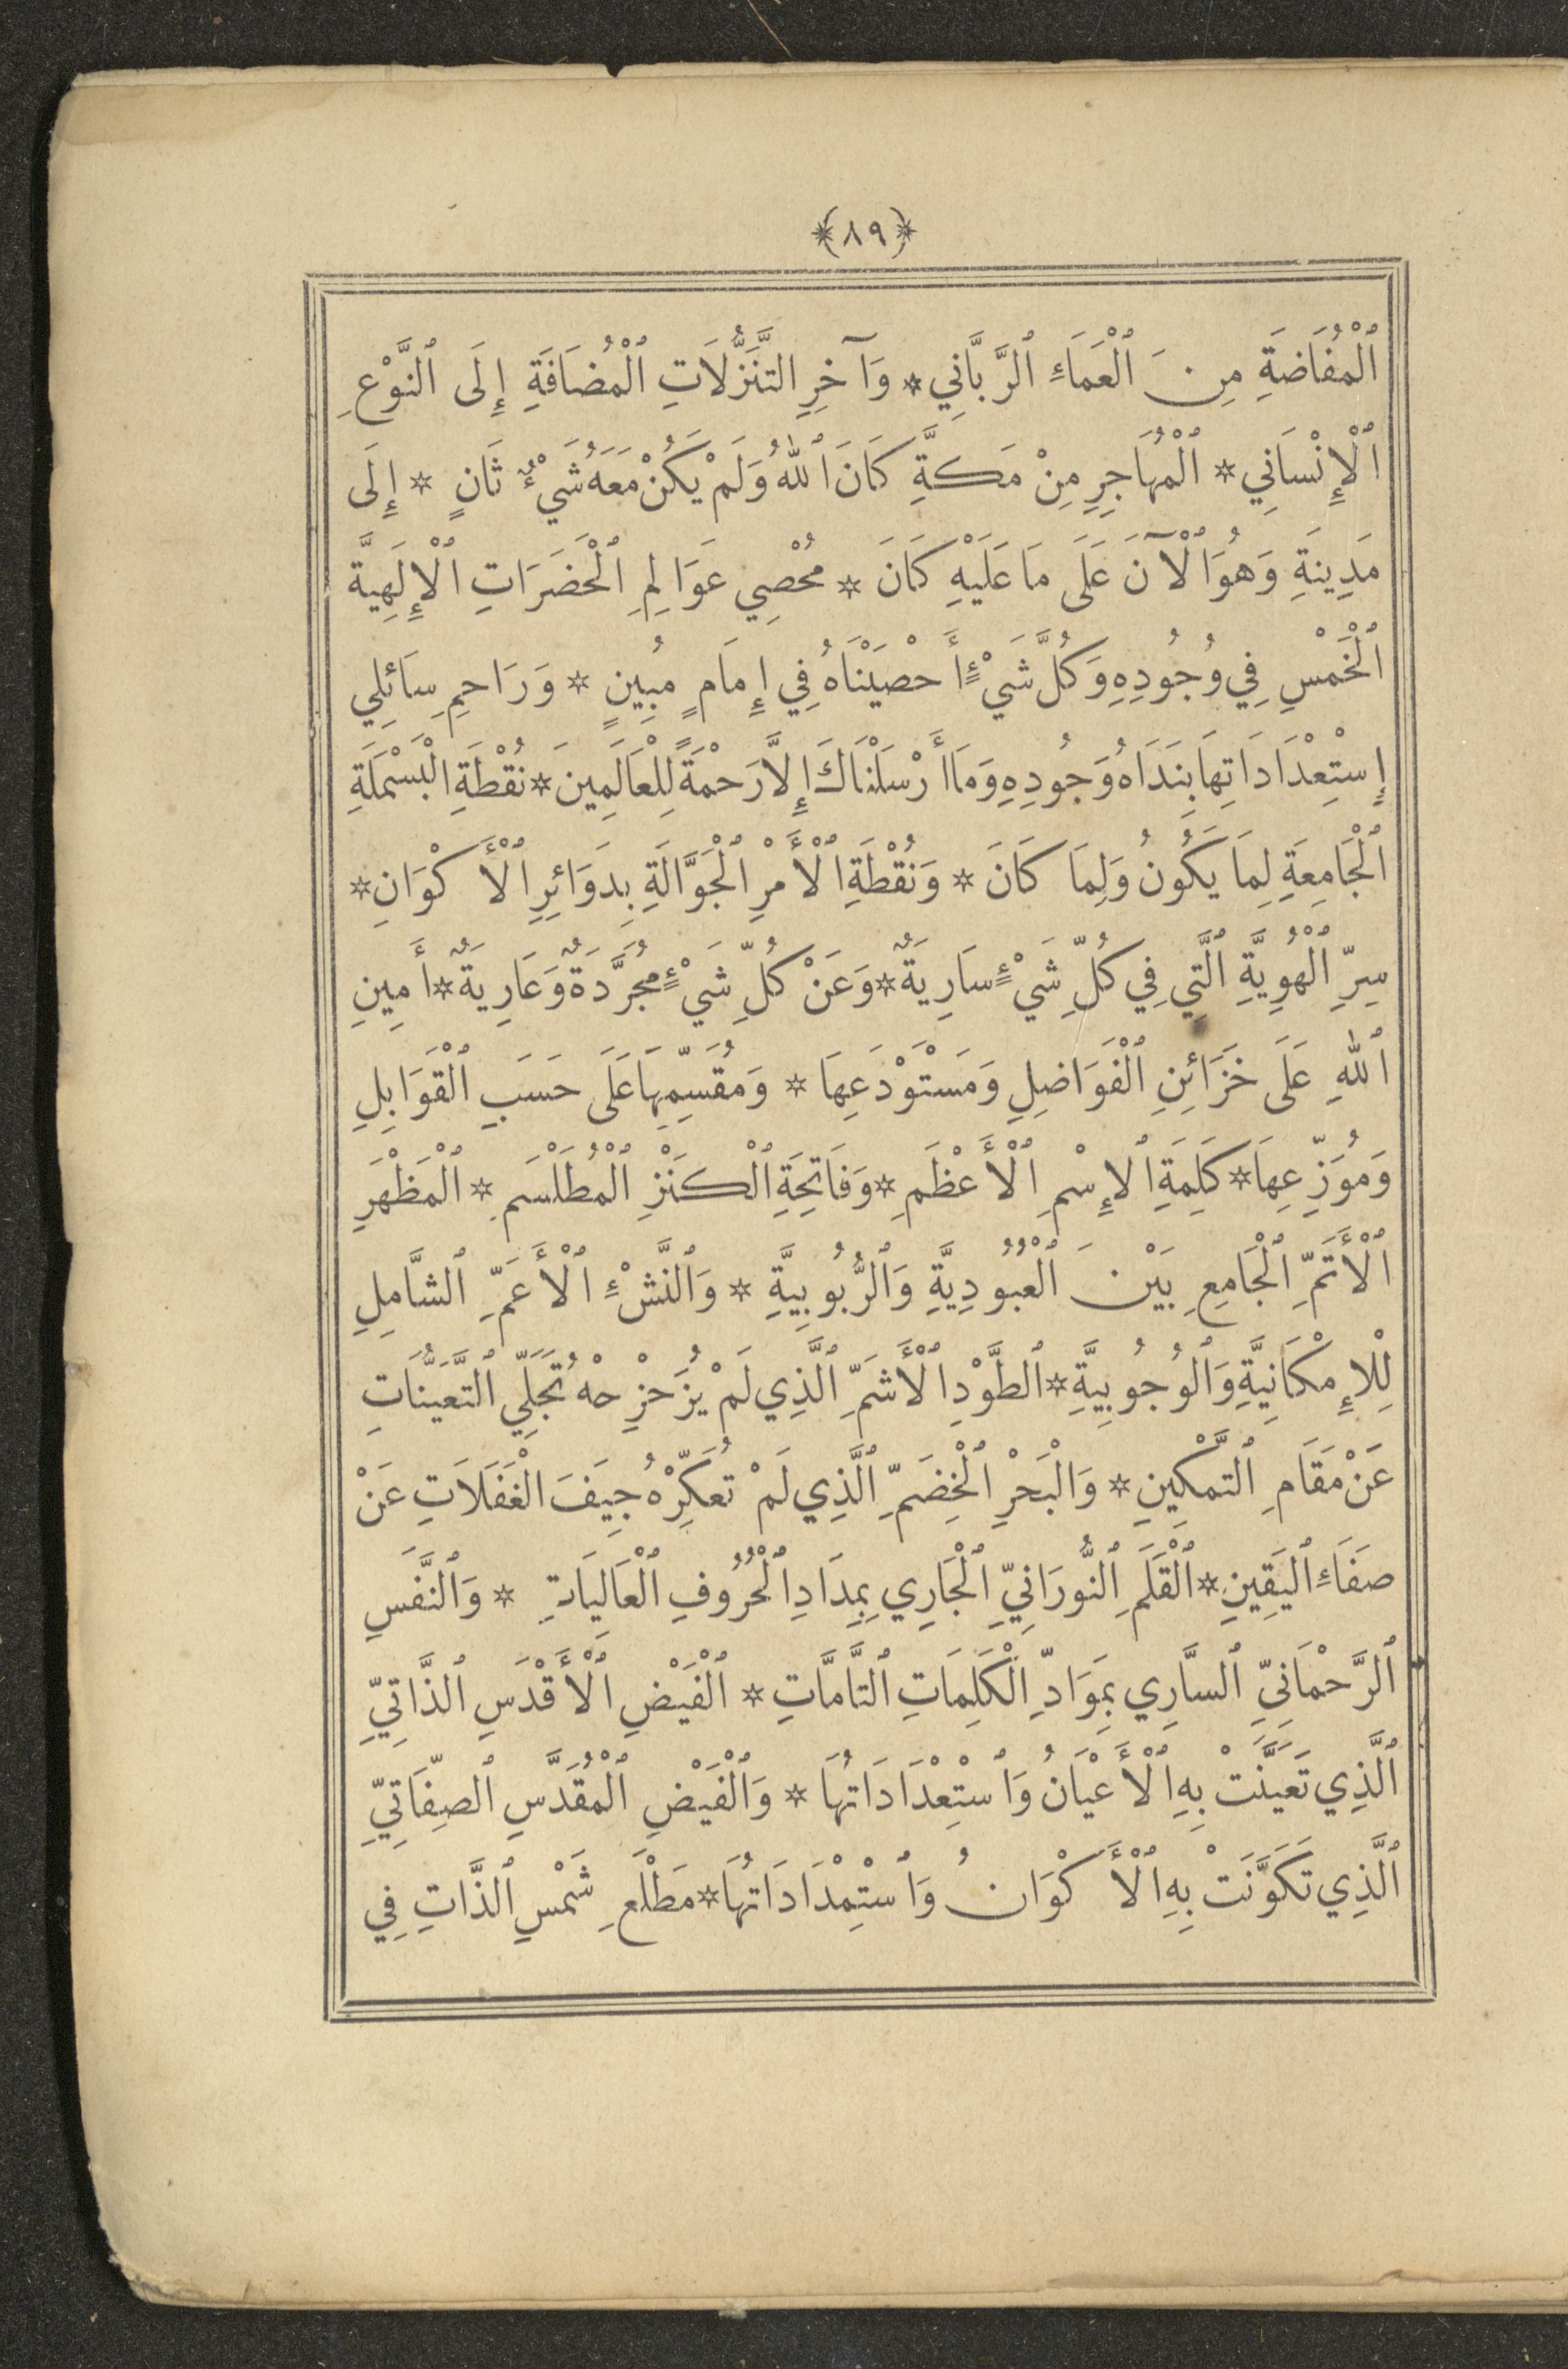 ﴿٨٩﴾
ٱلْمُفَاضَةِ مِنَ ٱلْعَمَاءِ ٱلرَّبَّانِي * وَآخِرِ التَّنَزُّلَاتِ ٱلْمُضَافَةِ إِلَى ٱلنَّوْعِ
ٱلْإِنْسَانِي * ٱلْمُهَاجِرِ مِنْ مَكَّةِ كَانَ ٱللهُ وَلَمْ يَكُنْ مَعَهُ شَيْءٌ ثَانٍ * إِلَى
مَدِينَةِ وَهُوَ ٱلْآنَ عَلَى مَا عَلَيْهِ كَانَ * مُحْصِي عَوَالِمِ ٱلْحَضَرَاتِ ٱلْإِلَهِيَّة
ٱلْخَمْسِ فِي وُجُودِهِ وَكُلَّ شَيْءٍ أَحْصَيْنَاهُ فِي إِمَامٍ مُبِينٍ * وَرَاحِمِ سَائِلِي
إِسْتِعْدَادَاتِهَا بِنَدَاهُ وَجُودِهِ وَمَا أَرْسَلْنَاكَ إِلَّا رَحْمَةً لِلْعَالَمِينَ * نُقْطَةِ الْبَسْمَلَةِ
ٱلْجَامِعَةِ لِمَا يَكُونُ وَلِمَا كَانَ * وَنُقْطَةِ ٱلْأَمْرِ ٱلْجَوَّالَةِ بِدَوَائِرِ ٱلْأَكْوَانِ *
سِرِّ ٱلْهُوِيَّةِ ٱلَّتِي فِي كُلِّ شَيْءٍ سَارِيَةٌ * وَعَنْ كُلِّ شَيْءٍ مُجَرَّدَةٌ وَعَارِيَةٌ * أَمِينِ
ٱللهِ عَلَى خَزَائِنِ ٱلْفَوَاضِلِ وَمَسْتَوْدَعِهَا * وَمُقَسِّمِهَا عَلَى حَسَبِ ٱلْقَوَابِلِ
وَمُوَزِّعِهَا * كَلِمَةِ ٱلإِسْمِ ٱلْأَعْظَمِ * وَفَاتِحَةِ ٱلْكَنْزِ ٱلْمُطَلْسَمِ * ٱلْمَظْهَرِ
ٱلْأَتَمِّ ٱلْجَامِعِ بَيْنَ ٱلْعُبُودِيَّةِ وَٱلرُّبُوبِيَّةِ * وَٱلنَّشْءِ ٱلْأَعَمِّ ٱلشَّامِلِ
لِلْإِمْكَانِيَّةِ وَٱلْوُجُوبِيَّةِ * ٱلطَّوْدِ ٱلْأَشَمِّ ٱلَّذِي لَمْ يُزَحْزِحْهُ تَجَلِّي ٱلتَّعَيُّنَاتِ
عَنْ مَقَامِ ٱلتَّمْكِينِ * وَالْبَحْرِ ٱلْخِضَمِّ ٱلَّذِي لَمْ تُعَكِّرْهُ جِيَفَ الْغَفَلَاتِ عَنْ
صَفَاءِ ٱلْيَقِينِ * ٱلْقَلَمِ ٱلنُّورَانِيِّ ٱلْجَارِي بِمِدَادِ ٱلْحُرُوفِ ٱلْعَالِيَاتِ * وَٱلنَّفَسِ
ٱلرَّحْمَانِيِّ ٱلسَّارِي بِمَوَادِّ ٱلْكَلِمَاتِ ٱلتَّامَّاتِ * ٱلْفَيْضِ ٱلْأَقْدَسِ ٱلذَّاتِيِّ
ٱلَّذِي تَعَيَّنَتْ بِهِ ٱلْأَعْيَانُ وَٱسْتِعْدَادَاتُهَا * وَٱلْفَيْضِ ٱلْمُقَدَّسِ ٱلصِّفَاتِيِّ
ٱلَّذِي تَكَوَّنَتْ بِهِ ٱلْأَكْوَانُ وَٱسْتِمْدَادَاتُهَا * مَطْلَعِ شَمْسِ ٱلذَّاتِ فِي